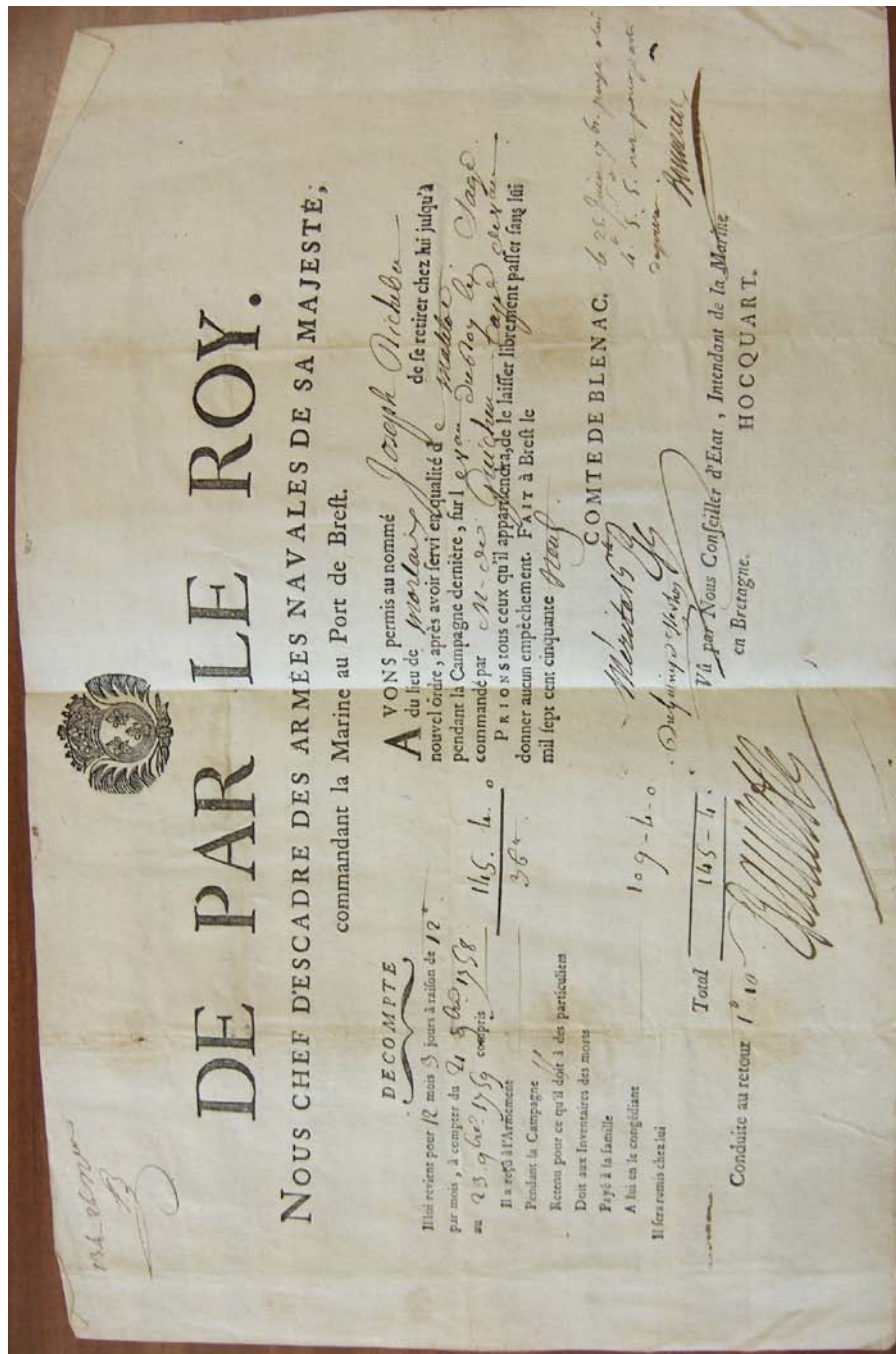 DE PAR LE ROY.
NOUS CHEF D'ESCADRE DES ARMÉES NAVALES DE SA MAJESTÉ,
commandant la Marine au Port de Brest.
DECOMPTE
Il lui revient pour 12 mois 3 jours à raison de 12
par mois, à compter du 21 9bre 1758
au 23 9bre 1759 compris 145. 4. 0
Il a reçû à l'Armement 36
Pendant la Campagne
Retenu pour ce qu'il doit à des particuliers
Doit aux Inventaires des morts
Payé à la famille
A lui en le congédiant
Il sera remis chez lui 109-4-0
Total 145-4.
Conduite au retour 1 10
AVONS permis au nommé Joseph Richebn
du lieu de morlaix de se retirer chez lui jusqu'à
nouvel ordre, après avoir servi en qualité de matelot
pendant la Campagne dernière, sur le vau du Roy le Sage
commandé par M. de Guichen
PRIONS tous ceux qu'il appartiendra, de le laisser librement passer sans lui
donner aucun empêchement. FAIT à Brest le
mil sept cent cinquante neuf
COMTE DE BLENAC.
Vû par Nous Conseiller d'Etat, Intendant de la Marine
en Bretagne.
HOCQUART.